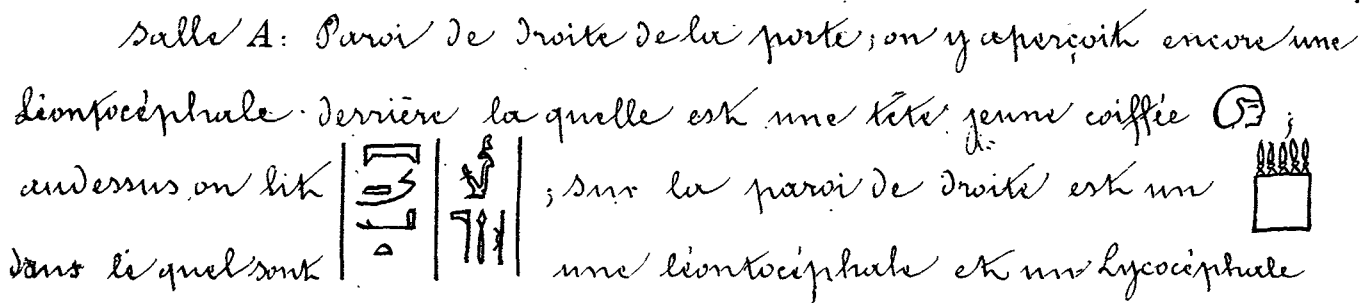 Salle A: Paroi de droite de la porte; on y aperçoit encore une
Léontocéphale derrière la quelle est une tête jeune coiffée ;
audessus on lit ; sur la paroi de droite est un
dans le quel sont une léontocéphale et un Lycocéphale